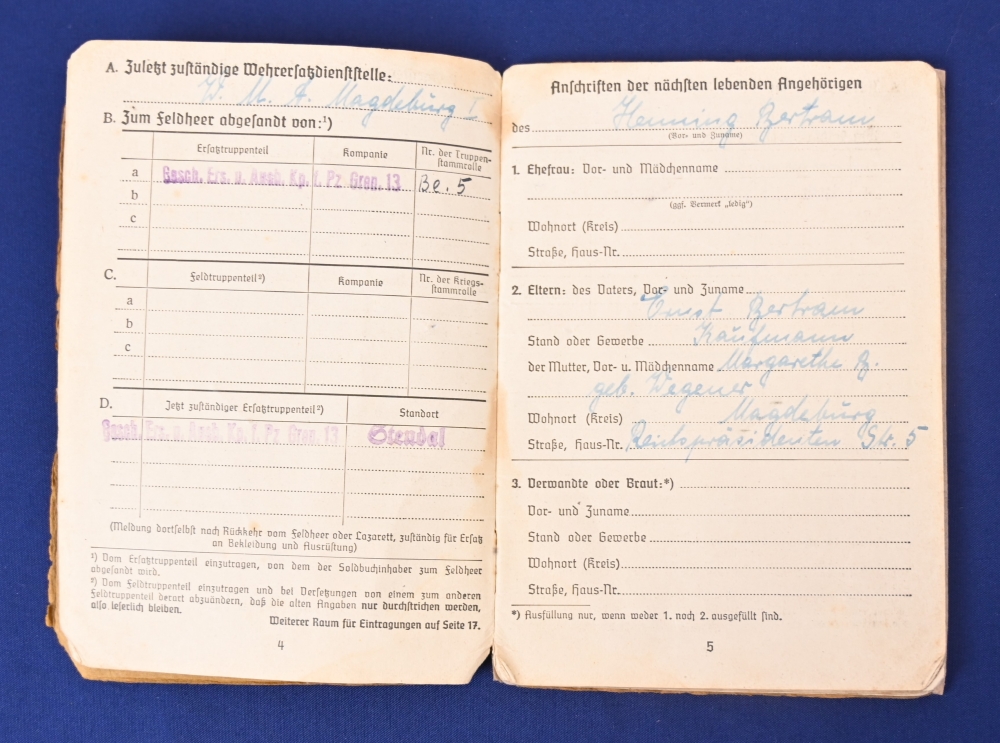 A. Zuletzt zuständige Wehrersatzdienststelle:
W. M. A. Magdeburg I
B. Zum Feldheer abgesandt von:¹)
Ersatztruppenteil Kompanie Nr. der Truppen-
stammrolle
a Gesch. Ers. u. Ausb. Kp. f. Pz. Gren. 13 Be. 5
b
c
C. Feldtruppenteil²) Kompanie Nr. der Kriegs-
stammrolle
a
b
c
D. Jetzt zuständiger Ersatztruppenteil²) Standort
Gesch. Ers. u. Ausb. Kp. f. Pz. Gren. 13 Stendal
(Meldung dortselbst nach Rückkehr vom Feldheer oder Lazarett, zuständig für Ersatz
an Bekleidung und Ausrüstung)
¹) Vom Ersatztruppenteil einzutragen, von dem der Soldbuchinhaber zum Feldheer
abgesandt wird.
²) Vom Feldtruppenteil einzutragen und bei Versetzungen von einem zum anderen
Feldtruppenteil derart abzuändern, daß die alten Angaben nur durchstrichen werden,
also leserlich bleiben.
Weiterer Raum für Eintragungen auf Seite 17.
4
Anschriften der nächsten lebenden Angehörigen
des Henning Bertram
(Vor- und Zuname)
1. Ehefrau: Vor- und Mädchenname
(ggf. Vermerk „ledig")
Wohnort (Kreis)
Straße, Haus-Nr.
2. Eltern: des Vaters, Vor- und Zuname
Ernst Bertram
Stand oder Gewerbe Kaufmann
der Mutter, Vor- u. Mädchenname Margarethe B.
geb. Wegener
Wohnort (Kreis) Magdeburg
Straße, Haus-Nr. Reichspräsidenten Str. 5
3. Verwandte oder Braut:*)
Vor- und Zuname
Stand oder Gewerbe
Wohnort (Kreis)
Straße, Haus-Nr.
*) Ausfüllung nur, wenn weder 1. noch 2. ausgefüllt sind.
5